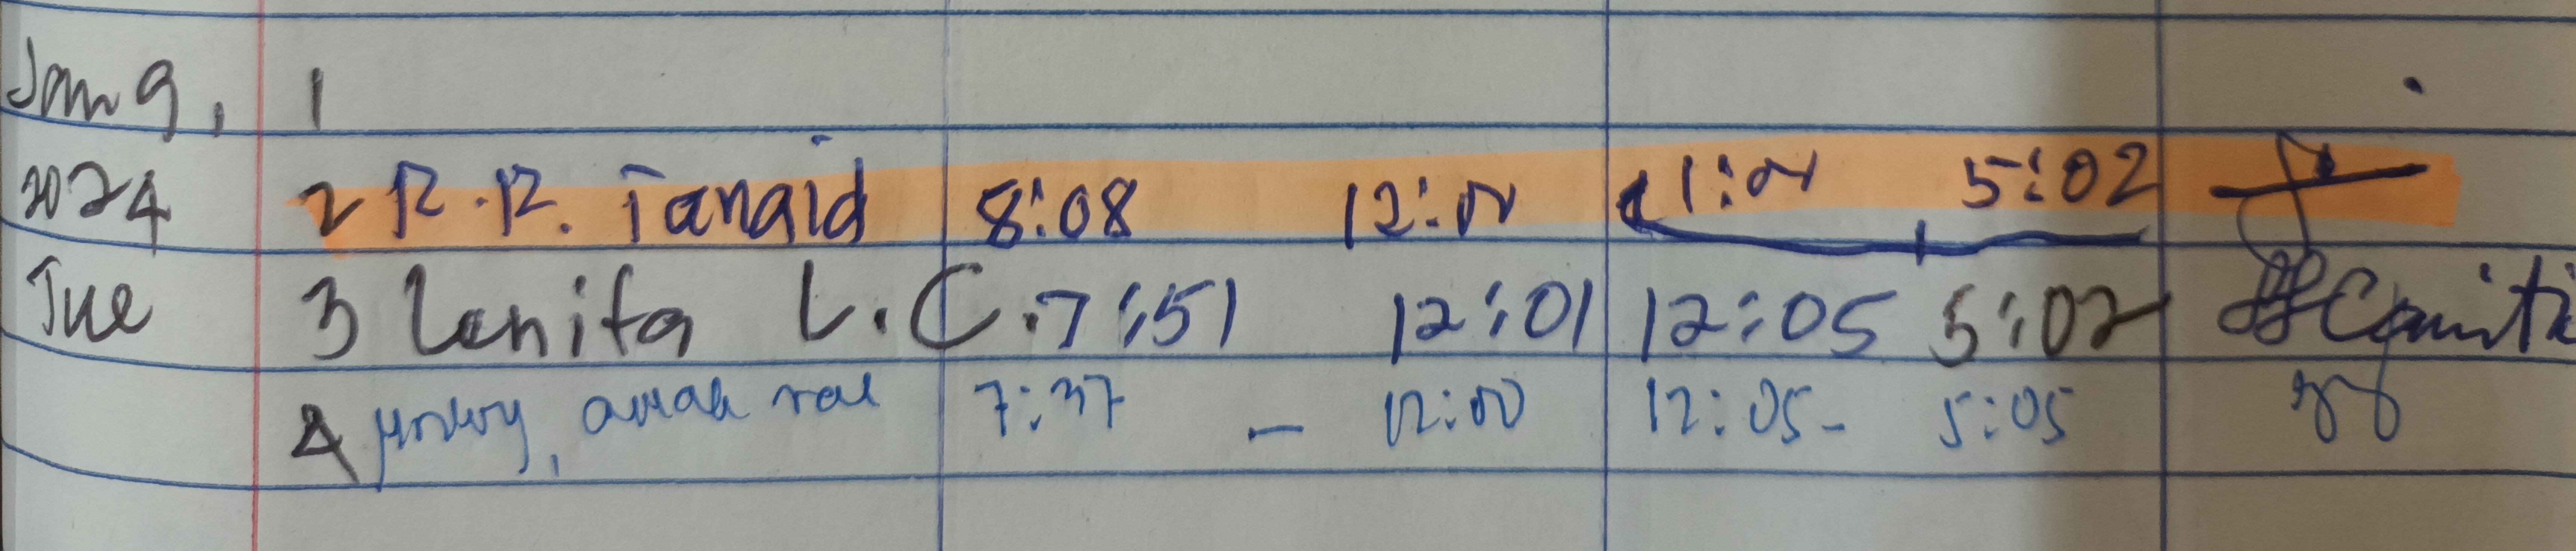 Jan 9, 1
2024 2 R.R. Tanaid 8:08 12:00 1:00 5:02
Tue 3 Lenifa L.C. 7:51 12:01 12:05 5:02
4 7:37 - 12:00 12:05 - 5:05